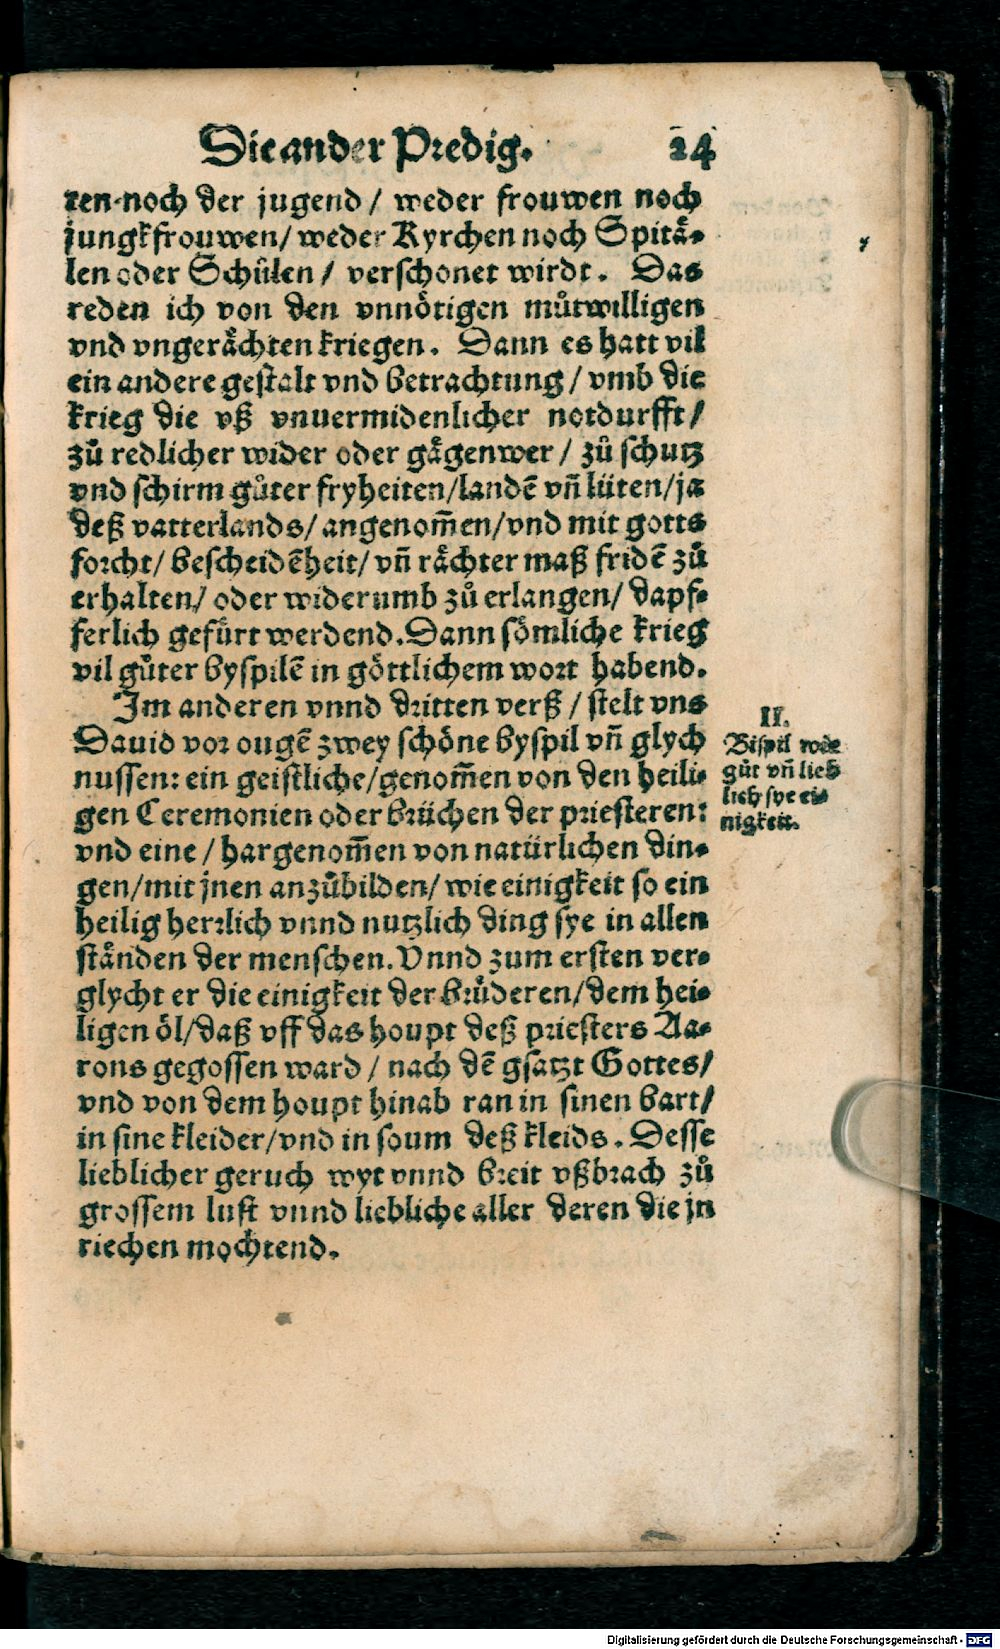 Die ander Predig. 24
ren noch der jugend / weder frouwen noch
jungkfrouwen/ weder Kyrchen noch Spitaͤ⸗
len oder Schuͤlen / verschonet wirdt. Das
reden ich von den vnnoͤtigen muͦtwilligen
vnd vngeraͤchten kriegen. Dann es hatt vil
ein andere gestalt vnd betrachtung / vmb die
krieg die vß vnuermidenlicher notdurfft/
zuͦ redlicher wider oder gaͤgenwer / zuͦ schutz
vnd schirm guͦter fryheiten/landē vñ lüten/ja
deß vatterlands/ angenom̃en/vnd mit gotts
forcht/ bescheidēheit/ vñ raͤchter maß fridē zuͦ
erhalten/ oder widerumb zuͦ erlangen/ dapf⸗
ferlich gefuͤrt werdend. Dann soͤmliche krieg
vil guͦter byspilē in goͤttlichem wort habend.
Im anderen vnnd dritten verß / stelt vns
Dauid vor ougē zwey schoͤne byspil vñ glych
nussen: ein geistliche/genom̃en von den heili⸗
gen Ceremonien oder brüchen der priesteren:
vnd eine / har genom̃en von natürlichen din⸗
gen/mit jnen anzuͦbilden/ wie einigkeit so ein
heilig herrlich vnnd nutzlich ding sye in allen
staͤnden der menschen. Vnnd zum ersten ver⸗
glycht er die einigkeit der bruͤderen/dem hei⸗
ligen oͤl/daß vff das houpt deß priesters Aa⸗
rons gegossen ward / nach dē gsatzt Gottes/
vnd von dem houpt hinab ran in sinen bart/
in sine kleider/vnd in soum deß kleids. Desse
lieblicher geruch wyt vnnd breit vßbrach zuͦ
grossem lust vnnd liebliche aller deren die jn
riechen mochtend.
II.
Bispil wie
guͦt vñ lieb
lich sye ei⸗
nigkeit.
Digitalisierung gefördert durch die Deutsche Forschungsgemeinschaft - DFG